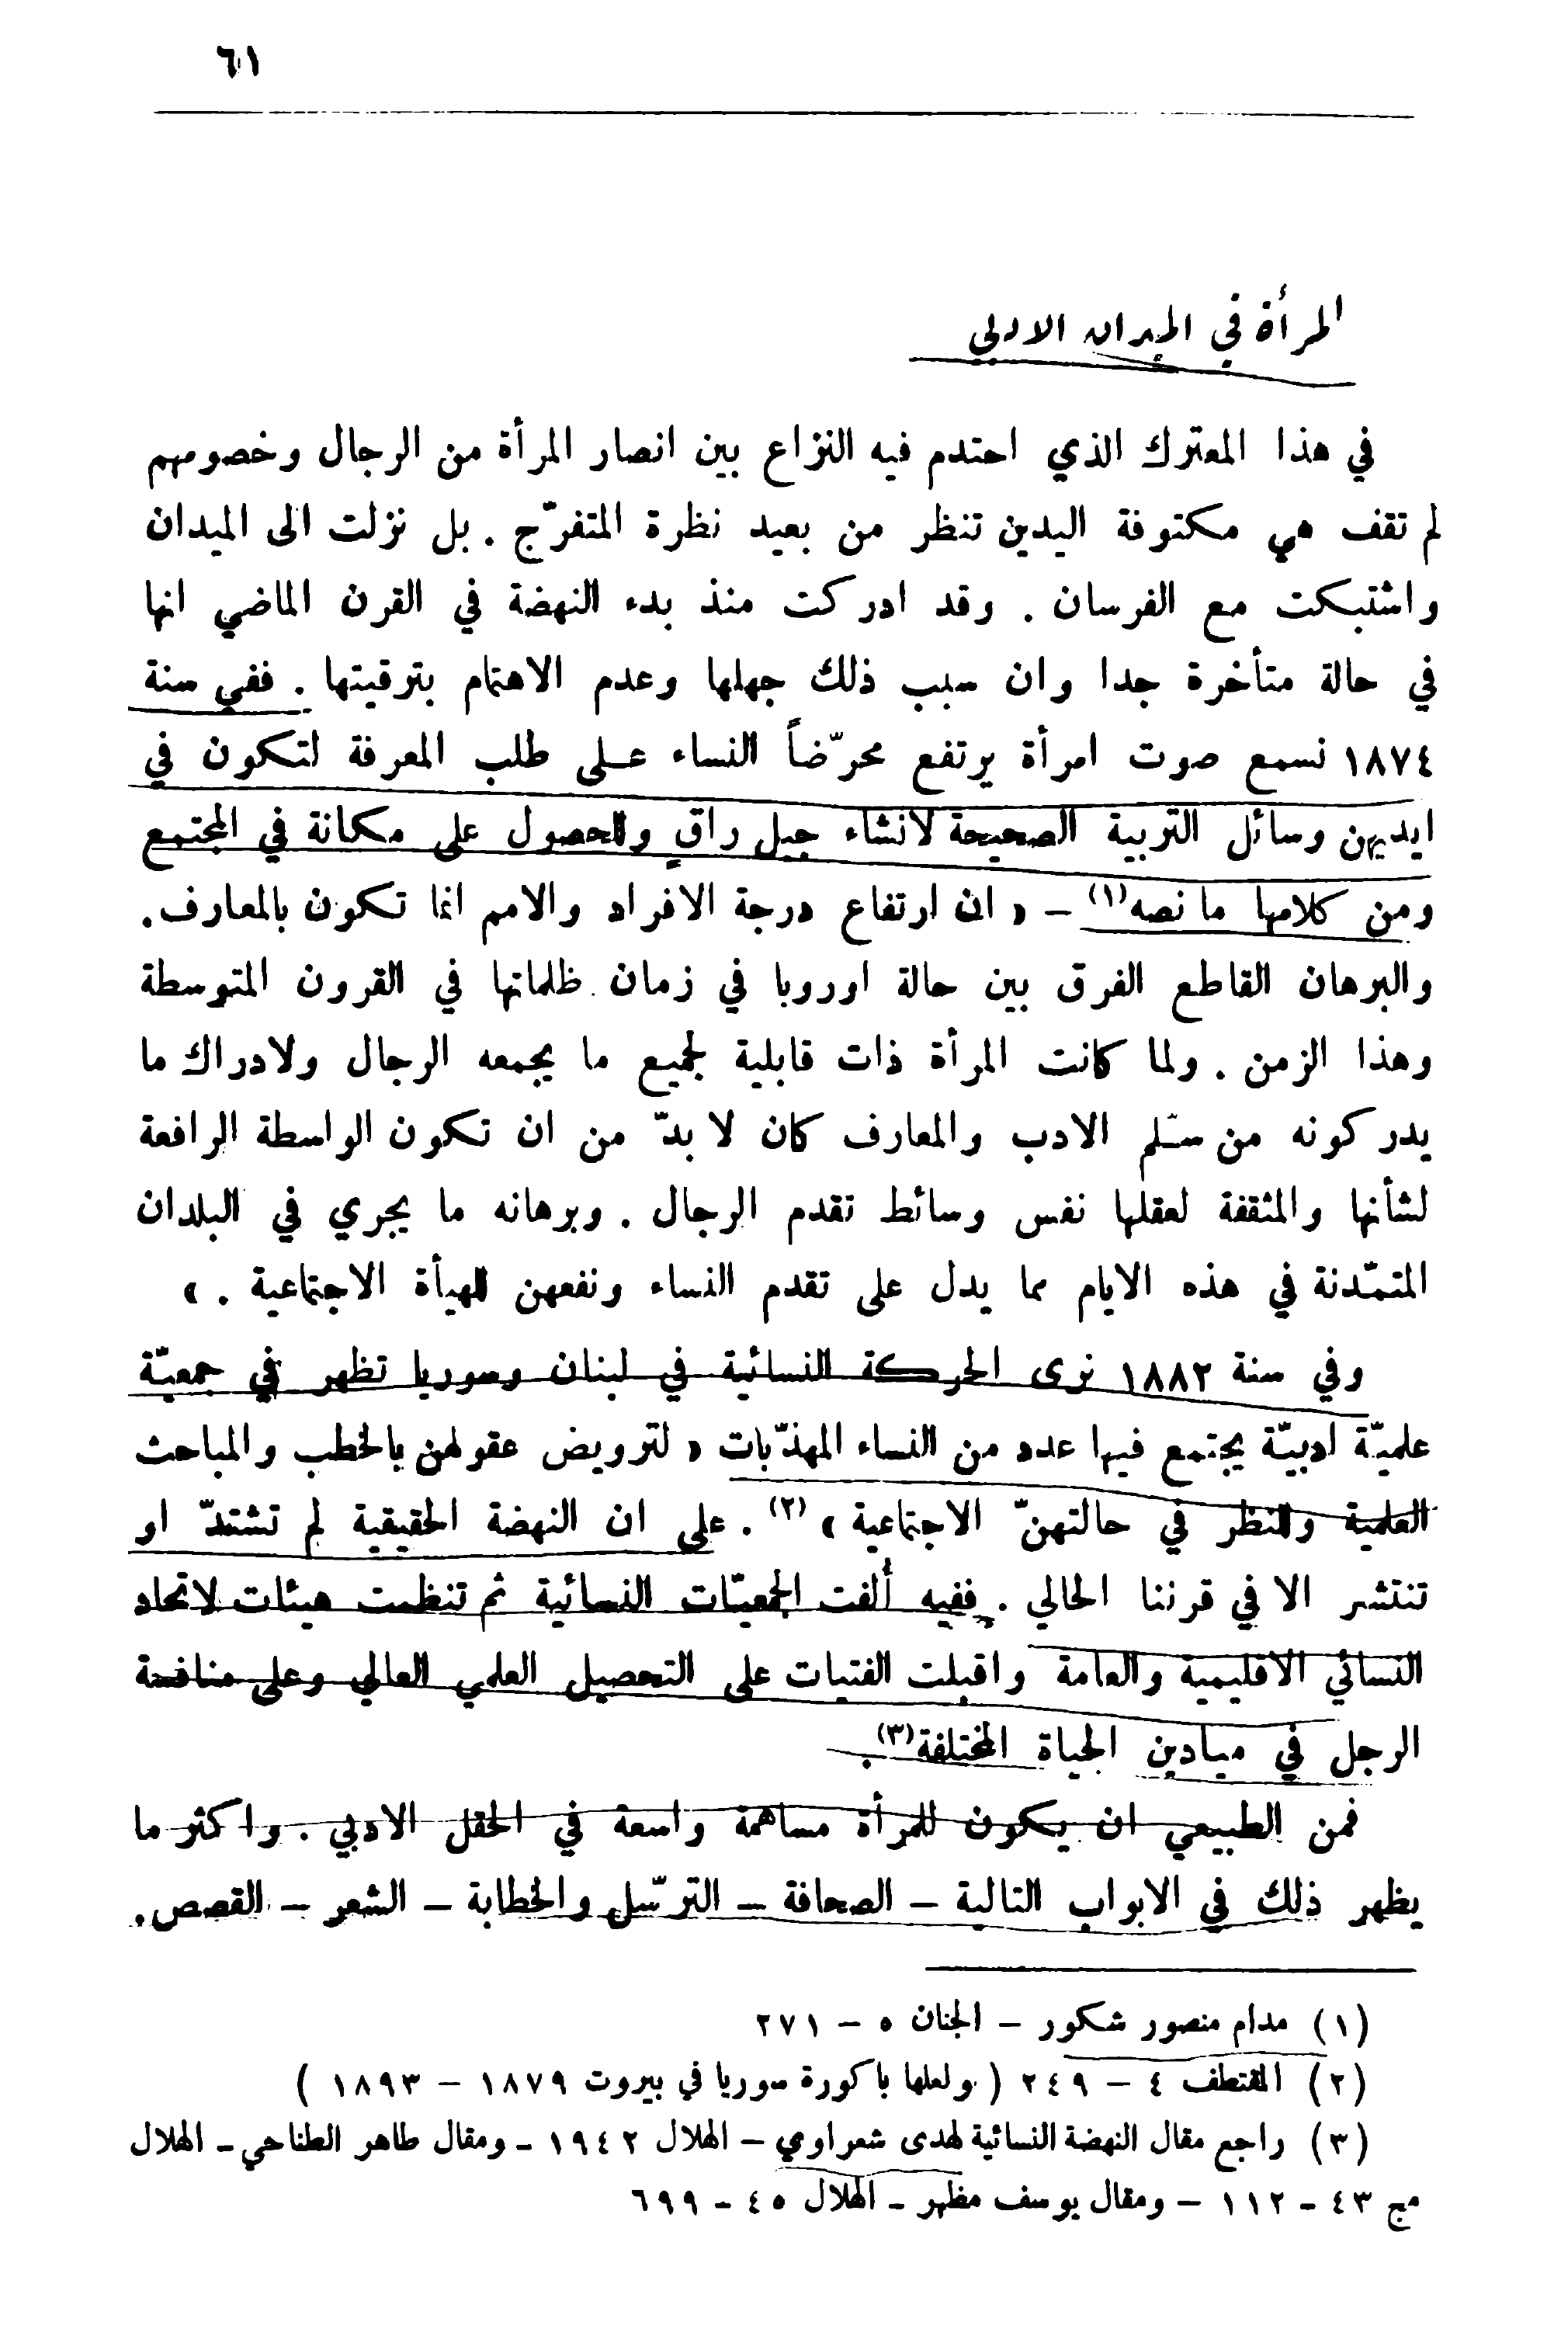 ٦١
المرأة في الميدان الادبي
في هذا المعترك الذي احتدم فيه النزاع بين انصار المرأة من الرجال وخصومهم
لم تقف هي مكتوفة اليدين تنظر من بعيد نظرة المتفرّج . بل نزلت الى الميدان
واشتبكت مع الفرسان . وقد ادركت منذ بدء النهضة في القرن الماضي انها
في حالة متأخرة جدا وان سبب ذلك جهلها وعدم الاهتمام بترقيتها . ففي سنة
١٨٧٤ نسمع صوت امرأة يرتفع محرّضاً النساء عـلى طلب المعرفة لتكون في
ايديهن وسائل التربية الصحيحة لانشاء جيل راقٍ وللحصول على مكانة في المجتمع
ومن كلامها ما نصه(١) – « ان ارتفاع درجة الافراد والامم انما تكون بالمعارف.
والبرهان القاطع الفرق بين حالة اوروبا في زمان ظلماتها في القرون المتوسطة
وهذا الزمن . ولما كانت المرأة ذات قابلية لجميع ما يجمعه الرجال ولادراك ما
يدركونه من سلّم الادب والمعارف كان لا بدّ من ان تكون الواسطة الرافعة
لشأنها والمثقفة لعقلها نفس وسائط تقدم الرجال . وبرهانه ما يجري في البلدان
المتمدّنة في هذه الايام مما يدل على تقدم النساء ونفعهن للهيأة الاجتماعية . »
وفي سنة ١٨٨٢ نرى الحركة النسائية في لبنان وسوريا تظهر في جمعيّة
علميّة ادبيّة يجتمع فيها عدد من النساء المهذّبات « لترويض عقولهن بالخطب والمباحث
العلمية وللنظر في حالتهنّ الاجتماعية » (٢) . على ان النهضة الحقيقية لم تشتدّ او
تنتشر الا في قرننا الحالي . ففيه ألفت الجمعيّات النسائية ثم تنظمت هيئات لاتحاد
النسائي الاقليمية والعامة واقبلت الفتيات على التحصيل العلمي العالي وعلى منافسة
الرجل في ميادين الحياة المختلفة(٣).
فمن الطبيعي ان يكون للمرأة مساهمة واسعة في الحقل الادبي . واكثر ما
يظهر ذلك في الابواب التالية – الصحافة – الترسّل والخطابة – الشعر – القصص.
(١) مدام منصور شكور – الجنان ٥ – ٢٧١
(٢) المقتطف ٤ – ٢٤٩ ( ولعلها باكورة سوريا في بيروت ١٨٧٩ – ١٨٩٣ )
(٣) راجع مقال النهضة النسائية لهدى شعراوي – الهلال ١٩٤٢ - ومقال طاهر الطناحي - الهلال
مج ٤٣ - ١١٢ – ومقال يوسف مظهر - الهلال ٤٥ - ٦٩٩